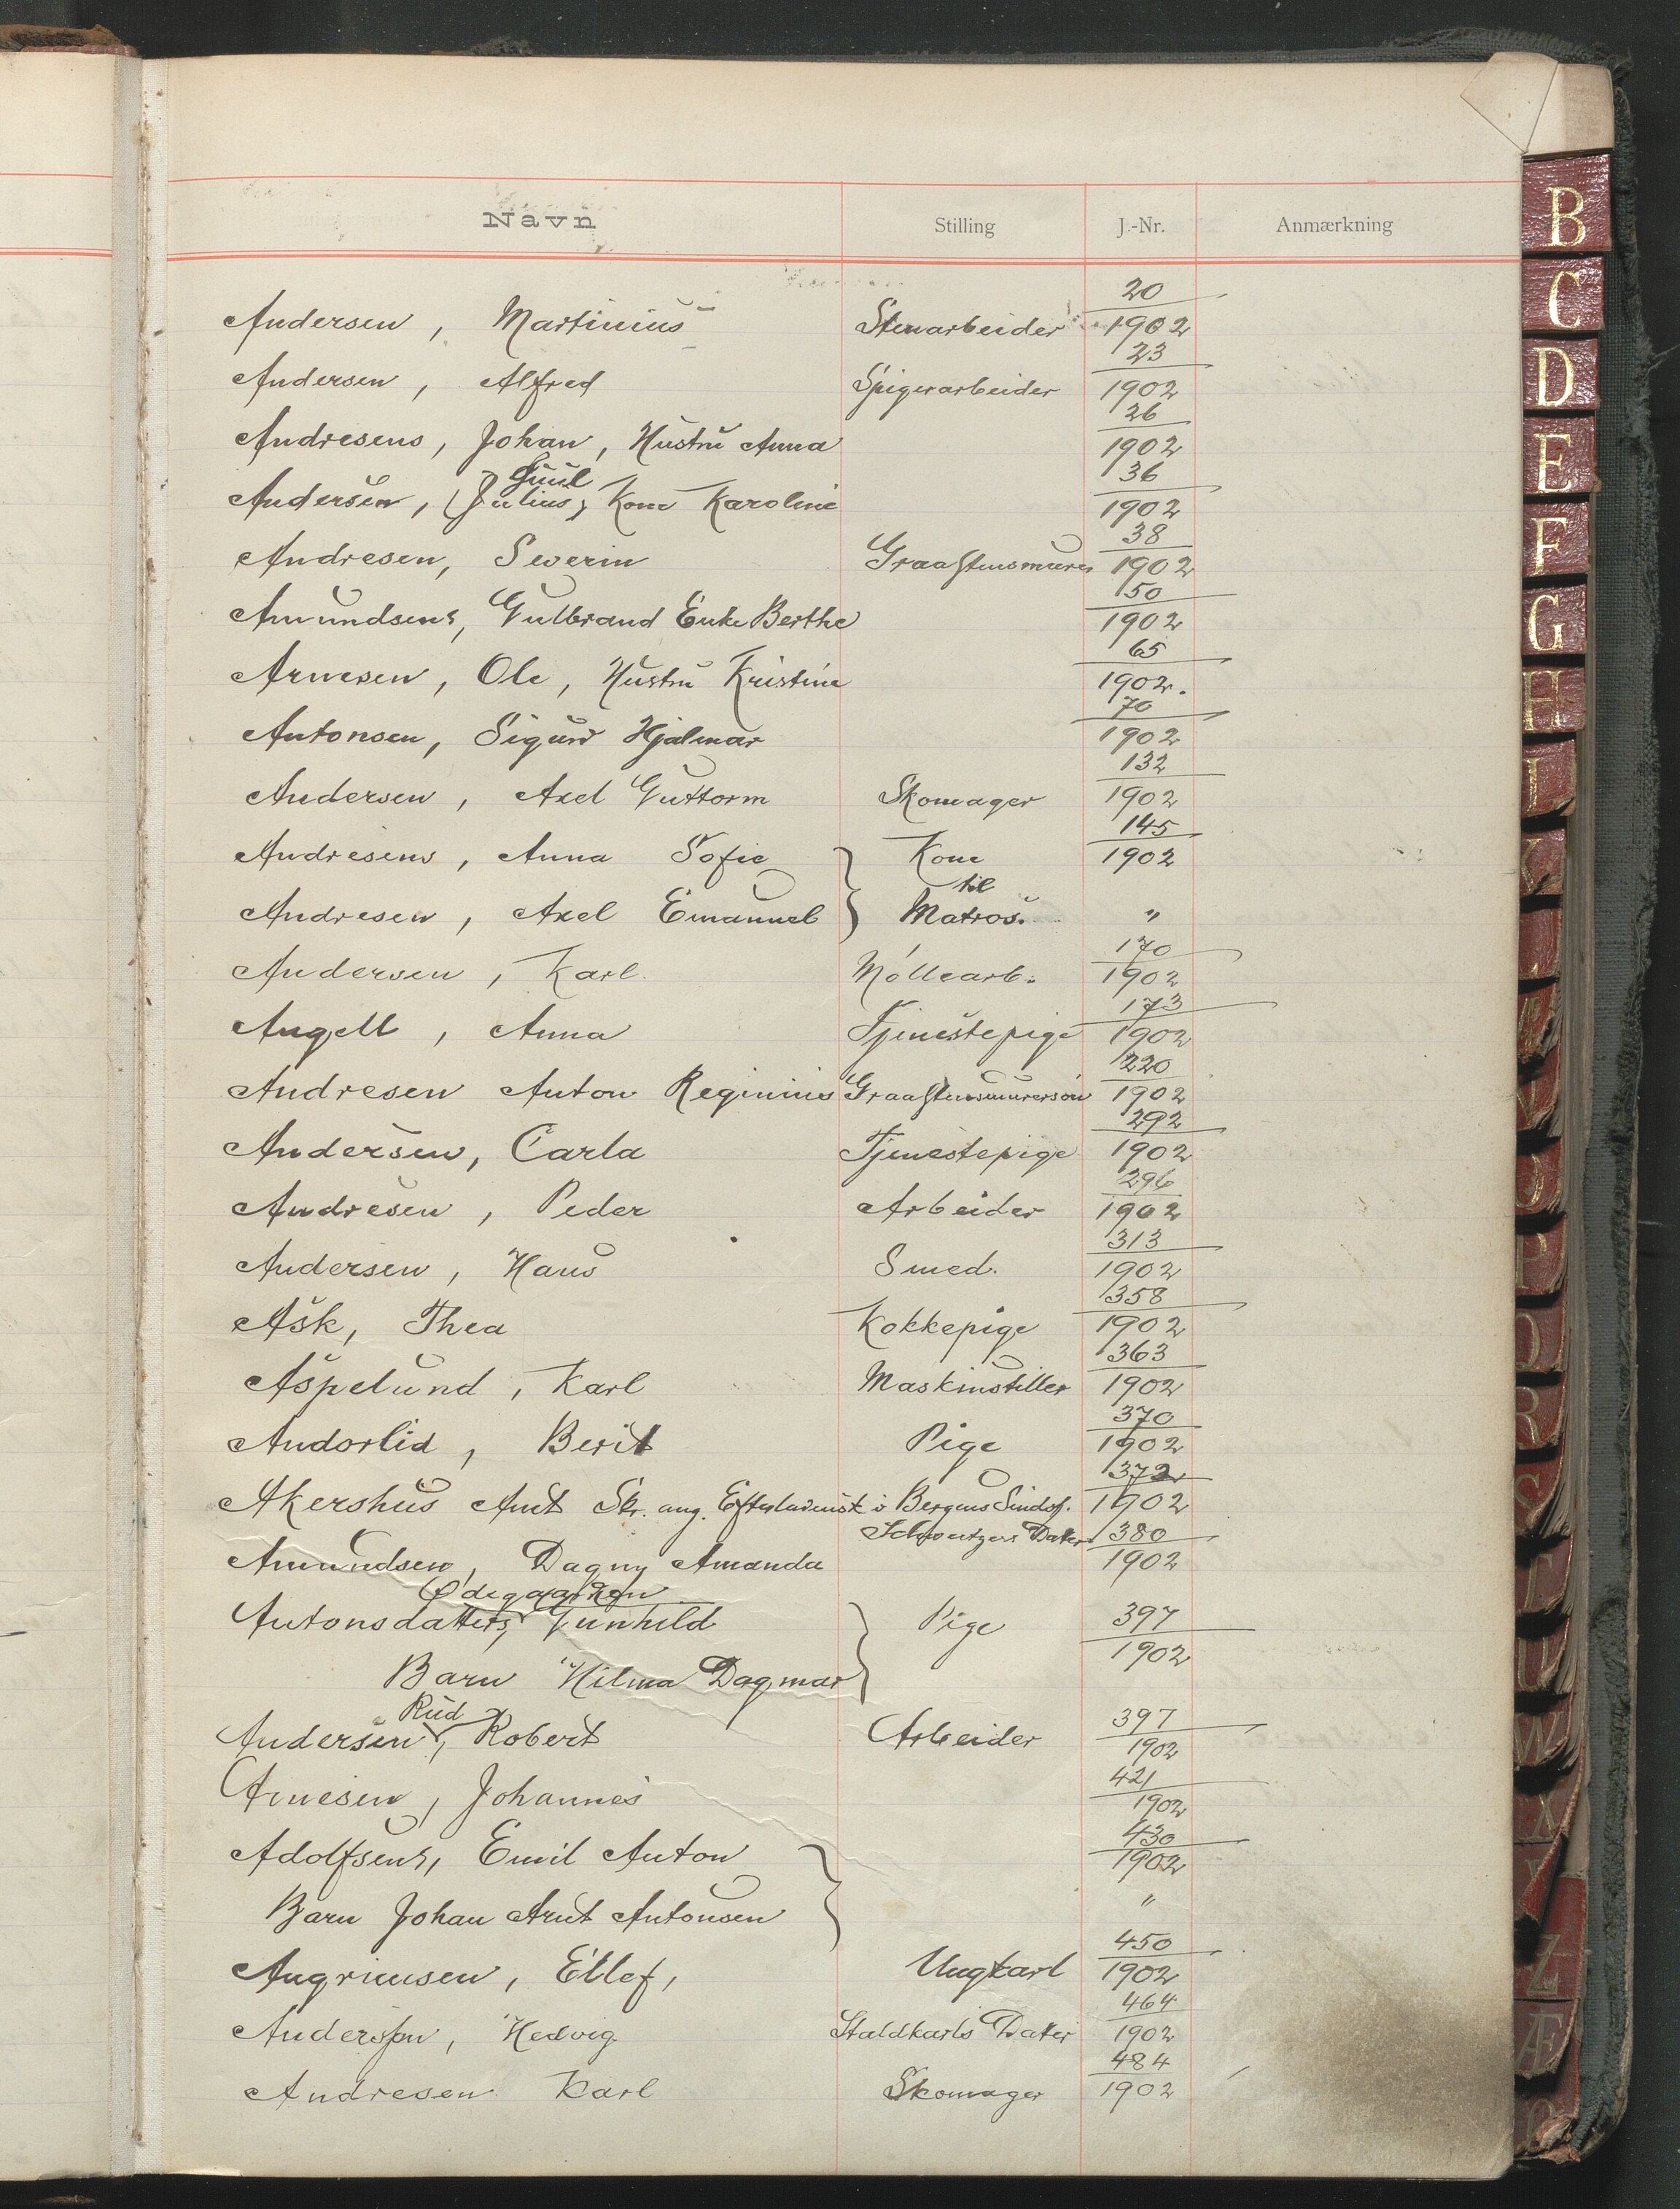 Navn Stilling J.-Nr. Anmærkning
20
Andersen, Martinius Stenarbeider 1902
23
Andersen, Alfred Spigerarbeider 1902
26
Andresens, Johan, Hustru Anna 1902
Juul 36
Andersen, (Julius) Kone Karoline 1902
38
Andresen, Severin Graastensmurer 1902
50
Amundsens, Gulbrand Enke Berthe 1902
65
Arnesen, Ole, Hustru Kristine 1902.
70
Antonsen, Sigurd Hjalmar 1902
132
Andersen, Axel Guttorm Skomager 1902
145
Andresens, Anna Sofie Kone 1902
til
Andresen, Axel Emanuel Matros. "
170
Andersen, Karl Møllearb. 1902
173
Angell, Anna Tjenestepige 1902
220
Andresen Anton Reginius Graastensmurersøn 1902
292
Andersen, Carla Tjenestepige 1902
296
Andresen, Peder Arbeider 1902
313
Andersen, Hans Smed. 1902
358
Ask, Thea Kokkepige 1902
363
Aspelund, Karl Maskinstiller 1902
370
Andorlid, Berit Pige 1902
372
Akershus Amt Skr. ang. i Bergens Sindsf. 1902
Schweitzers Datter 380
Amundsen, Dagny Amanda 1902
Ødegaarden
Antonsdatters, Gunhild Pige 397
1902
Barn Hilma Dagmar
Rud 397
Andersen, Robert Arbeider 1902
421
Arnesen, Johannes 1902
430
Adolfsens, Emil Anton 1902
Barn Johan Arnt Antonsen "
450
Angrimsen, Ellef, Ungkarl 1902
464
Andersson, Hedvig Staldkarls Datter 1902
484
Andresen Karl Skomager 1902
B
C
D
E
F
G
H
I
K
L
M
N
O
P
Q
R
S
T
U
W
X
Z
Æ
Ø